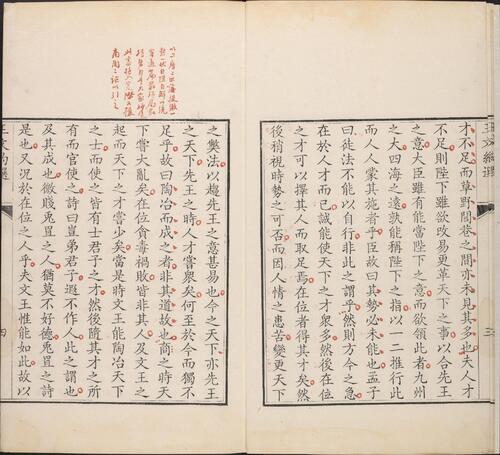 才不足而草野閭巷之間亦未見其多也夫人才
不足則陛下雖欲改易更革天下之事以合先王
之意大臣雖有能當陛下之意而欲領此者九州
之大四海之遠孰能稱陛下之指以一二推行此
而人人蒙其施者乎臣故曰其勢必未能也孟子
曰徒法不能以自行非此之謂乎然則方今之急
在於人才而已誠能使天下之才衆多然後在位
之才可以擇其人而取足焉在位者得其才矣然
後稍視時勢之可否而因人情之患苦變更天下
之獘法以趨先王之意甚易也今之天下亦先王
之天下先王之時人才嘗衆矣何至於今而獨不
足乎故曰陶冶而成之者非其道故也商之時天
下嘗大亂矣在位貪毒禍敗皆非其人及文王之
起而天下之才嘗少矣當是時文王能陶冶天下
之士而使之皆有士君子之才然後隨其才之所
有而官使之詩曰豈弟君子遐不作人此之謂也
及其成也微賤兔罝之人猶莫不好德兔罝之詩
是也又況於在位之人乎夫文王惟能如此故以
四